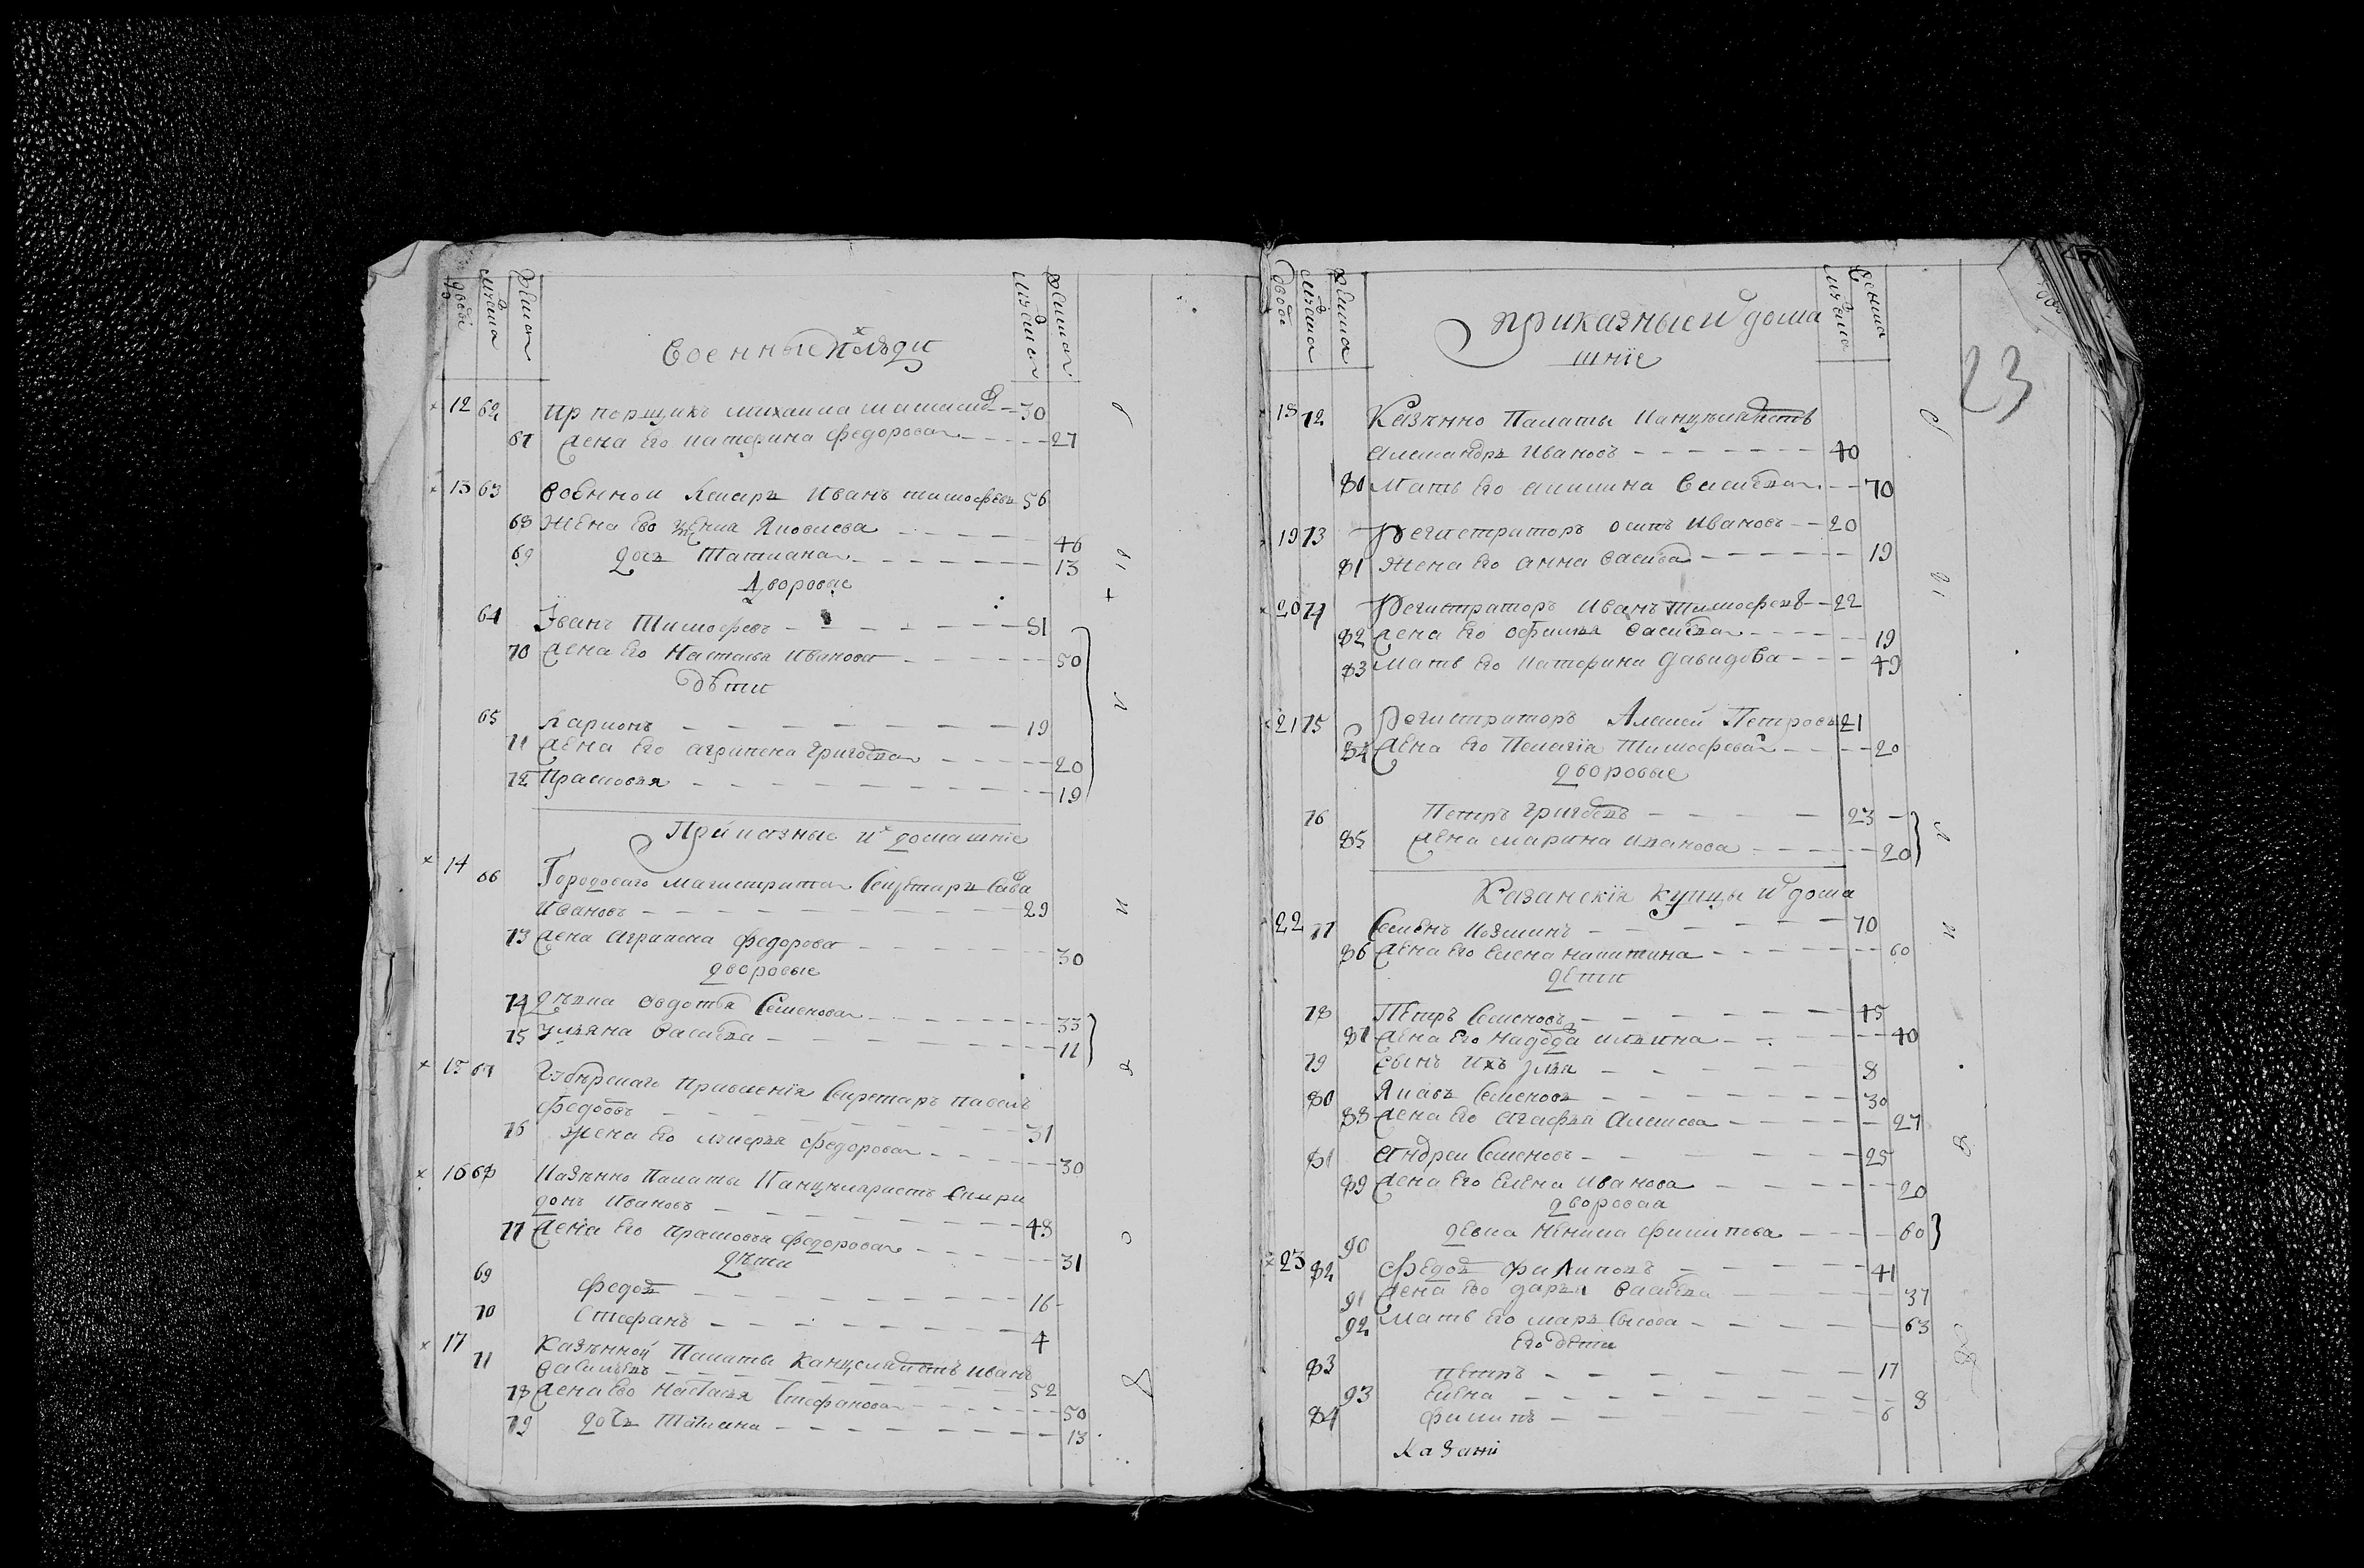 Военные и ихъ люди
12 62 Прапорщикъ Михаила 30
67 Жена его Катерина Федорова 27
13 63 Военной Лекарь Иванъ Тимофеевъ 56
68 Жена ево Яковлева 46
69 дочь Татиана 13
Дворовые
64 Иванъ Тимофеевъ 51
70 Жена его Настасья Иванова 50
дѣти
65 Ларионъ 19
71 Жена его Агрипена Григорьева 20
72 Прасковья 19
Приказные и домашнïе
14 66 Городоваго магистрата Секретарь Сава
Ивановъ 29
73 Жена Агрипена Федорова 30
дворовые
74 дѣвка Овдотья Семенова 33
75 Ульяна Васильева 11
15 67 Правленïя Секретарь Павелъ
Федоровъ 31
76 Жена его Федорова 30
16 68 Казѣнно Палаты Канцеляристъ Спири
донъ Ивановъ 48
77 Жена его Прасковья Федорова 31
дѣти
69 Федоръ 16
70 Стефанъ 4
17 71 Казѣнной Палаты Канцеляристъ Иванъ
Васильевъ 52
78 Жена ево Настасья Стефанова 50
79 дочь Татиана 13
приказные и дома
шнïе
23
18 72 Казѣнно Палаты Канцеляристъ
Александръ Ивановъ 40
80 Мать его Акилина Васильева 70
19 73 Регистраторъ Осипъ Ивановъ 20
81 Жена его Анна Васильева 19
20 74 Регистраторъ Иванъ Тимофеевъ 22
82 Жена его Офимья Васильева 19
83 Мать его Катерина Давидова 49
21 75 Регистраторъ Алексей Петровъ 21
84 Жена его Пелагïя Тимофеева 20
дворовые
76 Петръ Григорьевъ 23
85 Жена Марина Иванова 20
Казанскïя купцы и дома
22 77 Семенъ Козминъ 70
86 Жена его Елена Никитина 60
дѣти
78 Петръ Семеновъ 45
87 Жена его Надежда Ильина 40
79 Сынъ ихъ Илья 8
80 Яковъ Семеновъ 30
88 Жена его Агафья Алексеева 27
81 Андреи Семеновъ 25
89 Жена его Елена Иванова 20
дворовая
90 девка Филипова 60
23 82 Федоръ Филиповъ 41
91 Жена ево Дарья Васильева 37
92 Мать его Марья 63
Его дети
83 Петръ 17
93 Елена 8
84 Филипъ 6
Казани